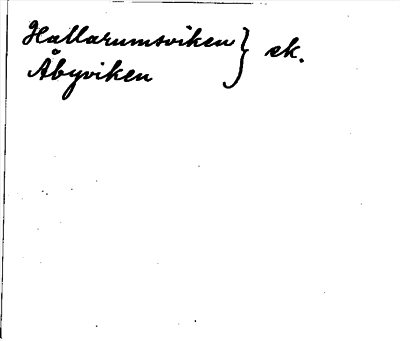 Hallarumsviken } ek.
Åbyviken